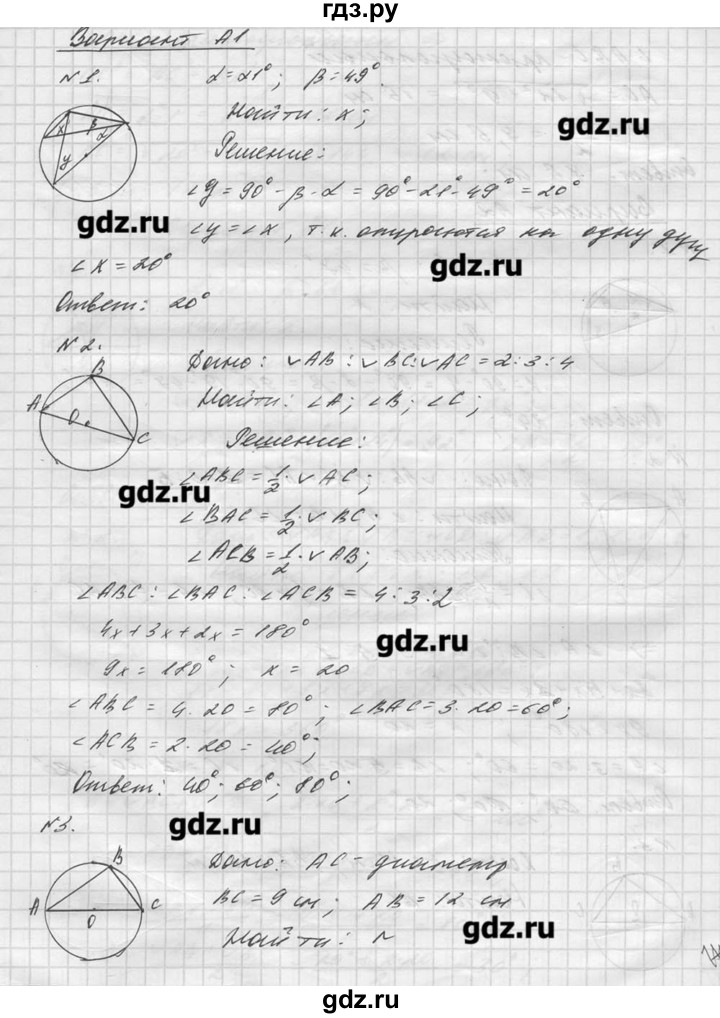 гдз.ру
Вариант А1
№1.
α=21°; β=49°.
Найти: x;
gdz.ru
x
β
α
y
Решение:
∠y=90°-β-α=90°-21°-49°=20°
gdz.ru
∠y=∠x, т.к. опираются на одну дугу
gdz.ru
∠x=20°
Ответ: 20°
№2.
Дано: ◡AB:◡BC:◡AC=2:3:4
B
A
O
C
Найти: ∠A; ∠B; ∠C;
Решение:
∠ABC=1/2·◡AC;
gdz.ru
∠BAC=1/2·◡BC;
∠ACB=1/2·◡AB;
∠ABC:∠BAC:∠ACB=4:3:2
4x+3x+2x=180°
gdz.ru
9x=180°; x=20
∠ABC=4·20=80°; ∠BAC=3·20=60°;
∠ACB=2·20=40°;
Ответ: 40°; 60°; 80°;
№3.
gdz.ru
B
A
O
C
Дано: AC-диаметр
BC=9 см; AB=12 см
gdz.ru
Найти: r
gdz.ru